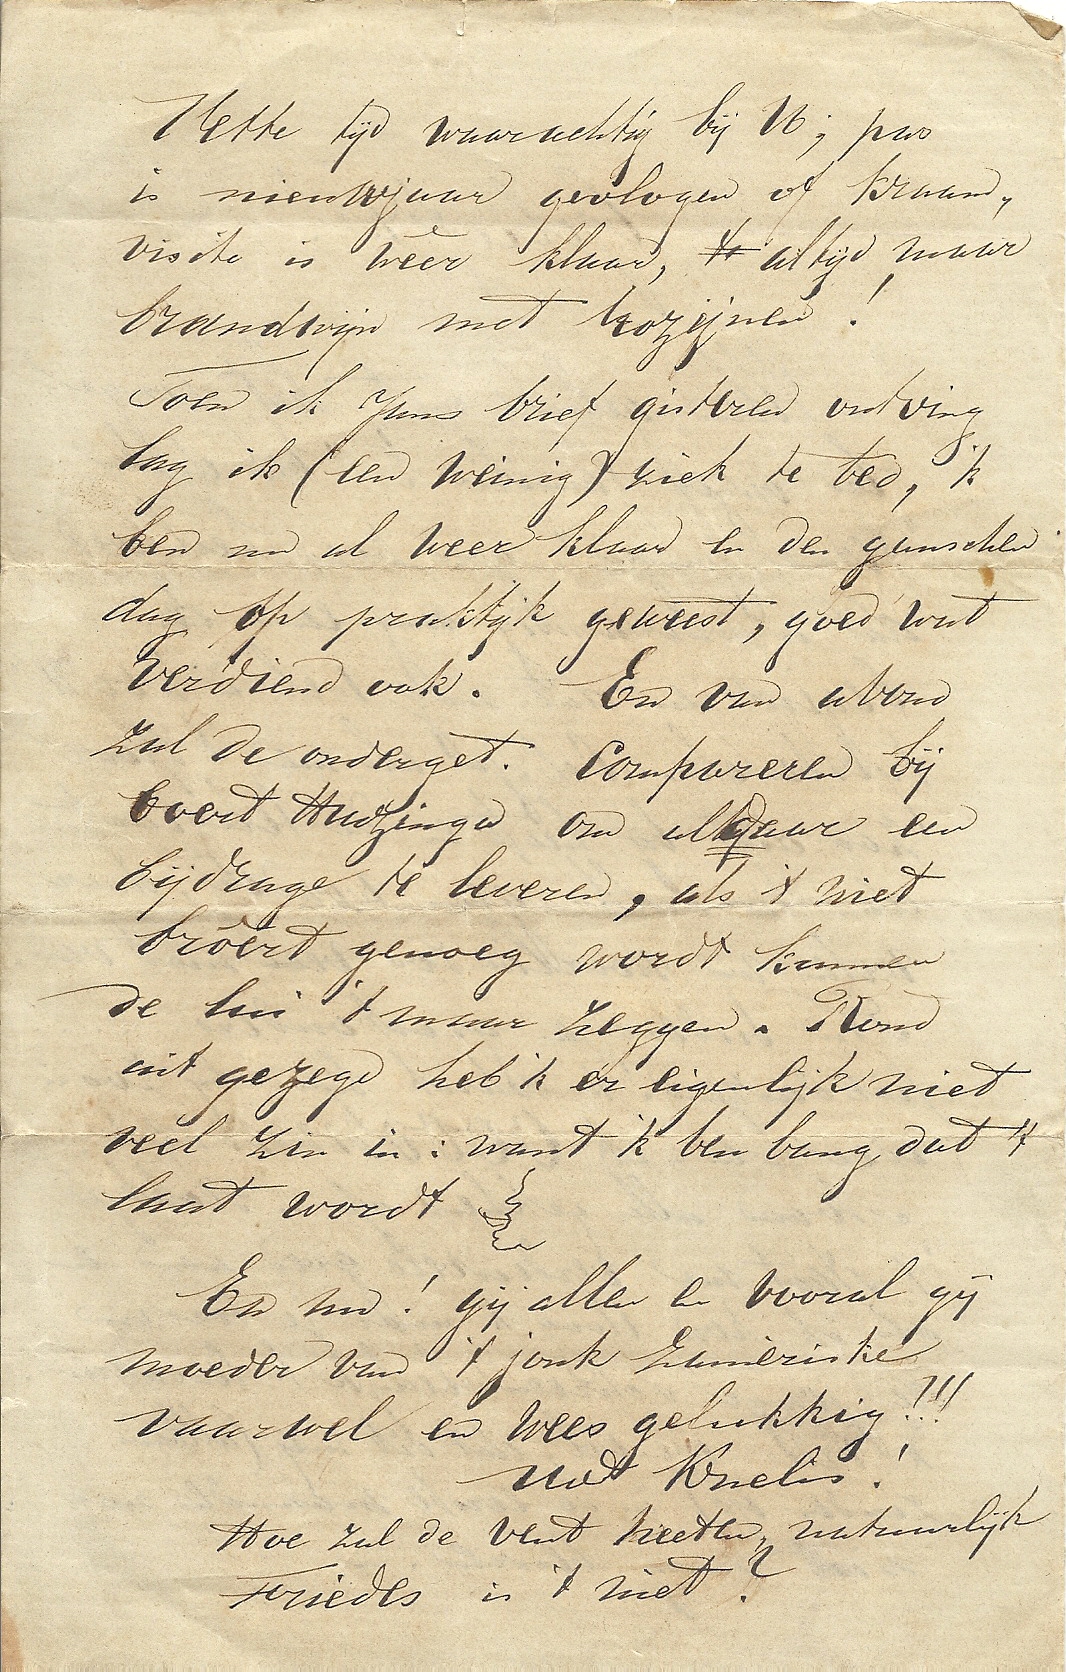 Nette tijd waarachtig bij U; pas
is nieuwjaar gevlogen of kraam,
visite is wéér klaar, altijd maar
brandwijn met rozijnen!
Toen ik Jans brief gisteren ontving
lag ik (een weinig) ziek te bed, ik
ben nu al weer klaar en den ganschen
dag op praktijk geweest, goed wat
verdiend ook. En van avond
zal de onderget. compareren bij
Evert Huizinga om aldaar een
bijdrage te leveren, als 't niet
genoeg wordt kunnen
de lui 't maar zeggen. Rond
uit gezegd heb 'k er eigenlijk niet
veel zin in: want 'k ben bang dat 't
laat wordt
En nu! gij allen en vooral gij
moeder van 't jonk
vaarwel en wees gelukkig!!!
Knelis!
Hoe zal de vent heeten, natuurlijk
is 't niet?